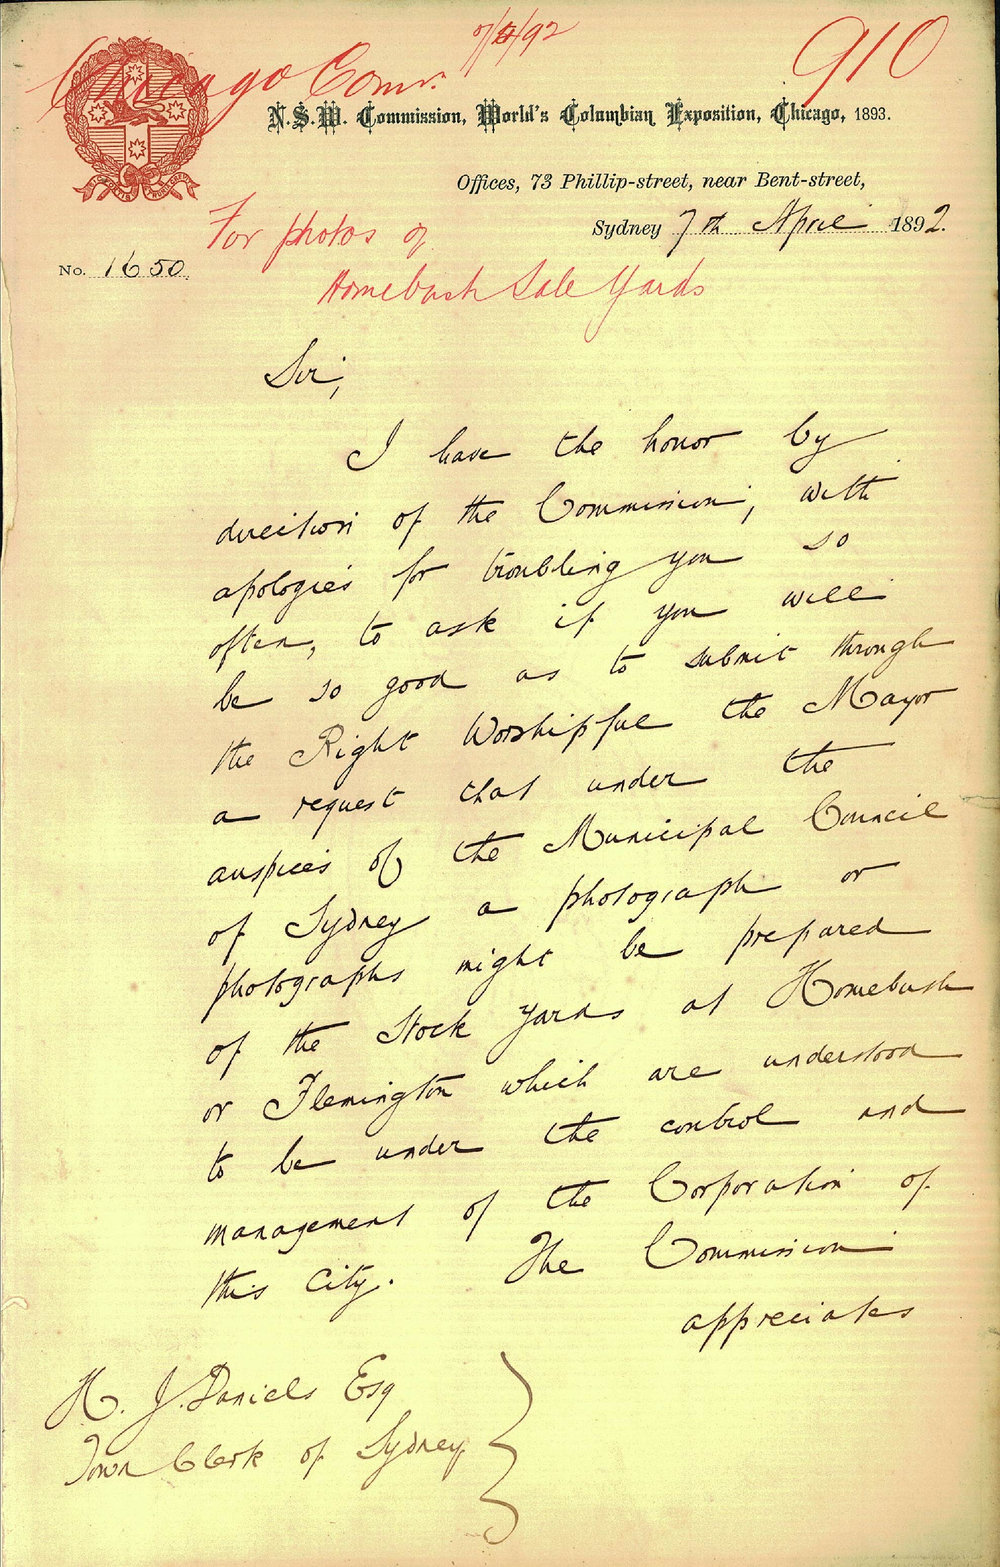 7/4/92
910
Chicago Comn.
N.S.W. Commission, World's Columbian Exposition, Chicago, 1893.
Offices, 73 Phillip-street, near Bent-street,
Sydney 7th April 1892.
For photos of
No. 1650.
Homebush Sale Yards
Sir,
I have the honor by
direction of the Commission, with
apologies for troubling you so
often, to ask if you will
be so good as to submit through
the Right Worshipful the Mayor
a request that under the
auspices of the Municipal Council
of Sydney a photograph or
photographs might be prepared
of the Stock yards at Homebush
or Flemington which are understood
to be under the control and
management of the Corporation of
this City. The Commission
appreciates
H. J. Daniels Esq
Town Clerk of Sydney